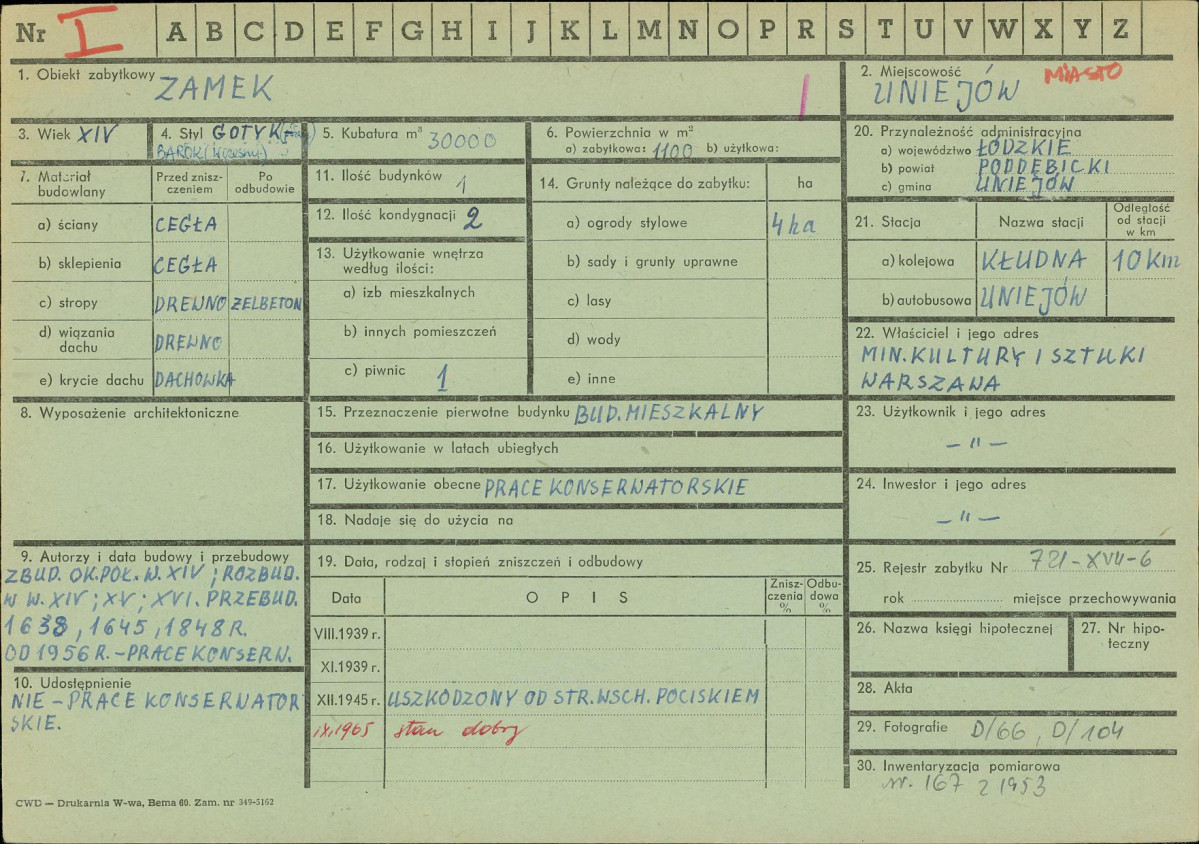 Nr I A B C D E F G H I J K L M N O P R S T U V W X Y Z
1. Obiekt zabytkowy ZAMEK
2. Miejscowość MIASTO
UNIEJÓW
3. Wiek XIV
4. Styl GOTYK
BAROK (wczesny)
5. Kubatura m³ 30000
6. Powierzchnia w m²
a) zabytkowa: 1100 b) użytkowa:
20. Przynależność administracyjna
a) województwo ŁÓDZKIE
b) powiat PODDĘBICKI
c) gmina UNIEJÓW
7. Materiał budowlany
Przed zniszczeniem
Po odbudowie
a) ściany CEGŁA
b) sklepienia CEGŁA
c) stropy DREWNO ŻELBETON
d) wiązania dachu DREWNO
e) krycie dachu DACHÓWKA
11. Ilość budynków 1
12. Ilość kondygnacji 2
13. Użytkowanie wnętrza
według ilości:
a) izb mieszkalnych
b) innych pomieszczeń
c) piwnic 1
14. Grunty należące do zabytku: ha
a) ogrody stylowe 4 ha
b) sady i grunty uprawne
c) lasy
d) wody
e) inne
21. Stacja Nazwa stacji Odległość od stacji w km
a) kolejowa KŁUDNA 10 Km
b) autobusowa UNIEJÓW
22. Właściciel i jego adres
MIN. KULTURY I SZTUKI
WARSZAWA
8. Wyposażenie architektoniczne
15. Przeznaczenie pierwotne budynku BUD. MIESZKALNY
16. Użytkowanie w latach ubiegłych
17. Użytkowanie obecne PRACE KONSERWATORSKIE
18. Nadaje się do użycia na
23. Użytkownik i jego adres
– " –
24. Inwestor i jego adres
– " –
9. Autorzy i data budowy i przebudowy
ZBUD. OK. POŁ. W. XIV ; ROZBUD.
W W. XIV ; XV ; XVI. PRZEBUD.
1638, 1645, 1848 R.
OD 1956 R. – PRACE KONSERW.
10. Udostępnienie
NIE – PRACE KONSERWATOR
SKIE.
19. Data, rodzaj i stopień zniszczeń i odbudowy
Data OPIS Zniszczenia % Odbudowa %
VIII.1939 r.
XI.1939 r.
XII.1945 r. USZKODZONY OD STR. WSCH. POCISKIEM
IX.1965 stan dobry
25. Rejestr zabytku Nr 721-XVII-6
rok miejsce przechowywania
26. Nazwa księgi hipotecznej
27. Nr hipoteczny
28. Akta
29. Fotografie D/66, D/104
30. Inwentaryzacja pomiarowa
nr. 167 z 1953
CWD — Drukarnia W-wa, Bema 60. Zam. nr 349-5162